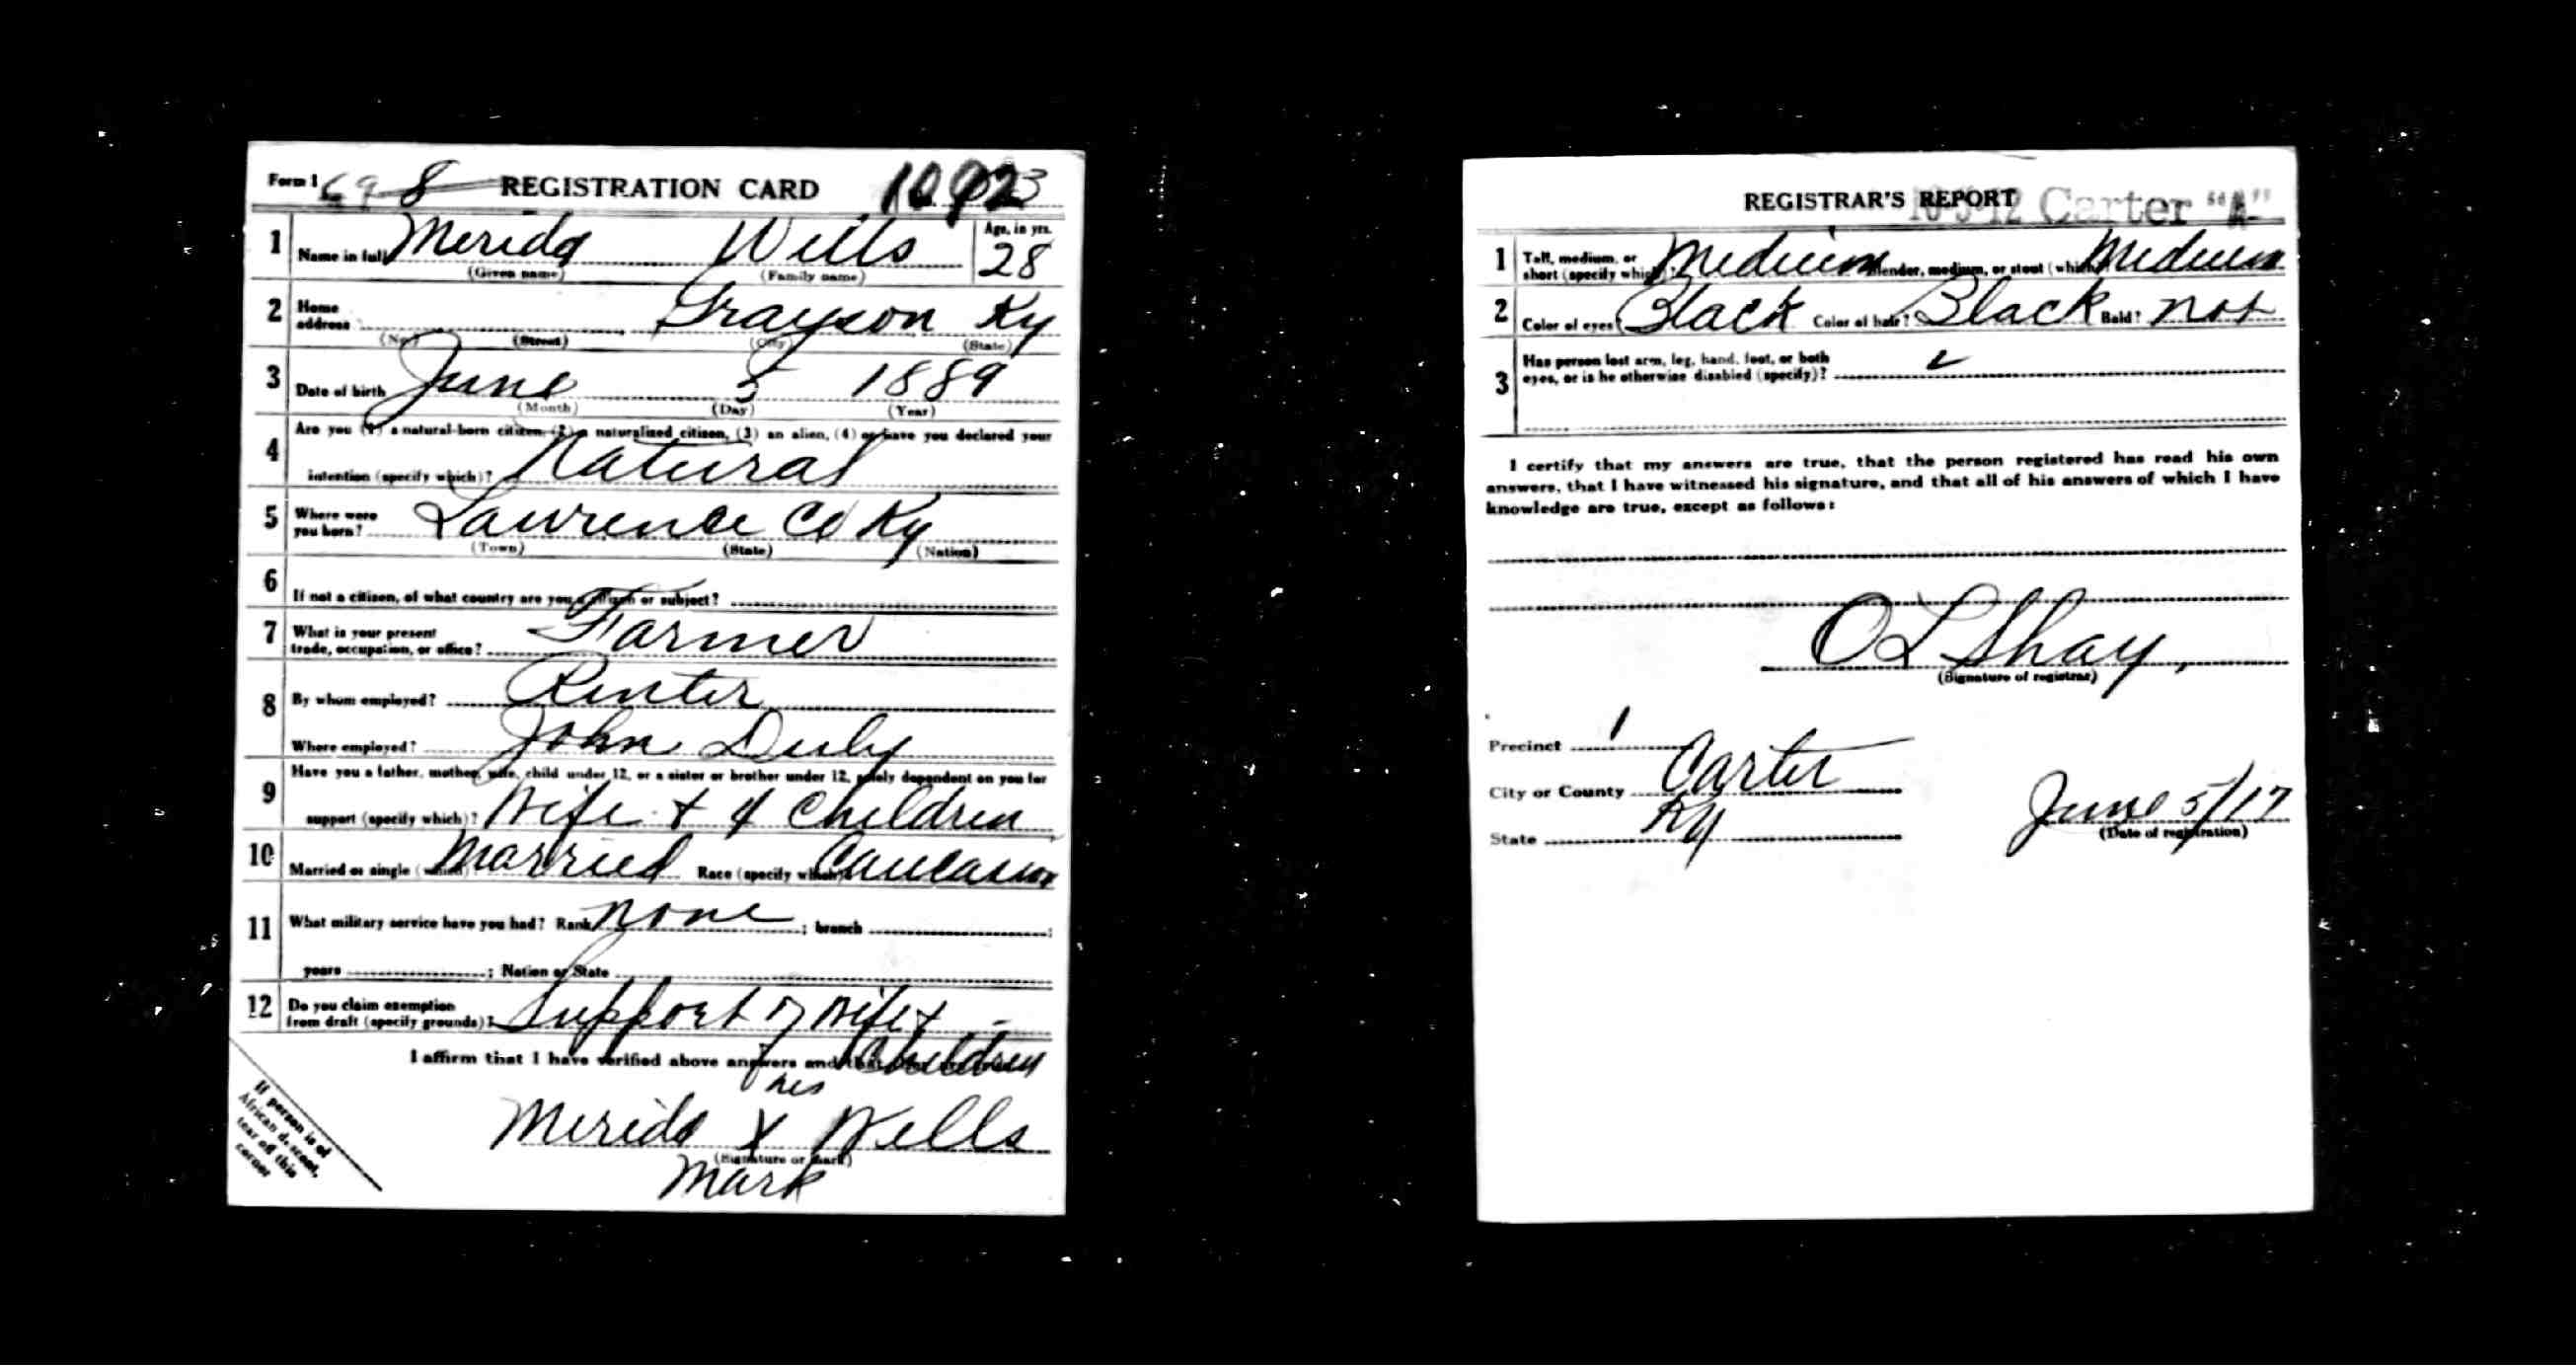 Form 1 698 REGISTRATION CARD
1 Name in full Merida Wells Age, in yrs. 28
(Given name) (Family name)
2 Home address Grayson Ky
(No.) (Street) (City) (State)
3 Date of birth June 5 1889
(Month) (Day) (Year)
4 Are you (1) a natural-born citizen, (2) a naturalized citizen, (3) an alien, (4) or have you declared your
intention (specify which)? Natural
5 Where were you born? Lawrence Co Ky
(Town) (State) (Nation)
6 If not a citizen, of what country are you a citizen or subject?
7 What is your present trade, occupation, or office? Farmer
8 By whom employed? Renter
Where employed? John
9 Have you a father, mother, wife, child under 12, or a sister or brother under 12, solely dependent on you for
support (specify which)? Wife + 4 Children
10 Married or single (which) Married Race (specify which) Caucasian
11 What military service have you had? Rank none ; branch ;
years ; Nation or State
12 Do you claim exemption from draft (specify grounds)? Support of wife +
Children
I affirm that I have verified above answers and that
his
Merida X Wells
(Signature or mark)
Mark
If person is of
African descent,
tear off this
corner
REGISTRAR'S REPORT Carter "A"
1 Tall, medium, or short (specify which)? Medium Slender, medium, or stout (which)? Medium
2 Color of eyes? Black Color of hair? Black Bald? not
3 Has person lost arm, leg, hand, foot, or both
eyes, or is he otherwise disabled (specify)?
I certify that my answers are true, that the person registered has read his own
answers, that I have witnessed his signature, and that all of his answers of which I have
knowledge are true, except as follows:
O L Shay,
(Signature of registrar)
Precinct 1
City or County Carter
State Ky
June 5/17
(Date of registration)